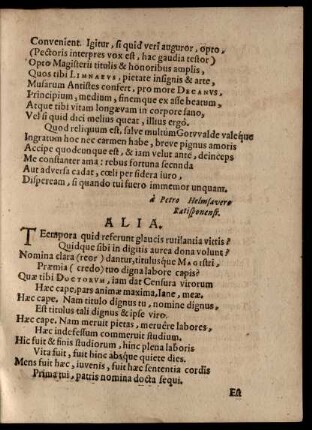 Convenient. Igitur, si quid veri auguror, opto,
(Pectoris interpres vox est, hac gaudia testor)
Opto Magisterii titulis & honoribus amplis,
Quos tibi LIMNAEVS, pietate insignis & arte,
Musarum Antistes confert, pro more DECANVS,
Principium, medium, finemque ex asse beatum,
Atque tibi vitam longævam in corpore sano,
Vel si quid dici melius queat, illius ergò.
Quod reliquum est, salve multùm Gotvvalde valeque
Ingratum hoc nec carmen habe, breve pignus amoris
Accipe quodcunque est, & iam velut antè, deinceps
Me constanter ama: rebus fortuna secunda
Aut adversa cadat, cœli per sidera juro,
Dispeream, si quando tui fuero immemor unquam.
à Petro Helmsavero
Ratisponensi.
ALIA.
TEempora quid referunt glaucis rutilantia vittis?
Quidque sibi in digitis aurea dona volunt?
Nomina clara (reor) dantur, titulusque MAGISTRI,
Præmia (credo) tuo digna labore capis?
Quæ tibi DUCTORUM, iam dat Censura virorum
Hæc cape, pars animæ maxima, Iane, meæ.
Hæc cape. Nam titulo dignus tu, nomine dignus,
Est titulus tali dignus & ipse viro.
Hæc cape. Nam meruit pietas, meruêre labores,
Hæc indefessum commeruit studium.
Hic fuit & finis studiorum, hinc plena laboris
Vita fuit, fuit hinc absque quiete dies.
Mens fuit hæc, iuvenis, fuit hæc sententia cordis
Prima tui, patris nomina docta sequi.
Est